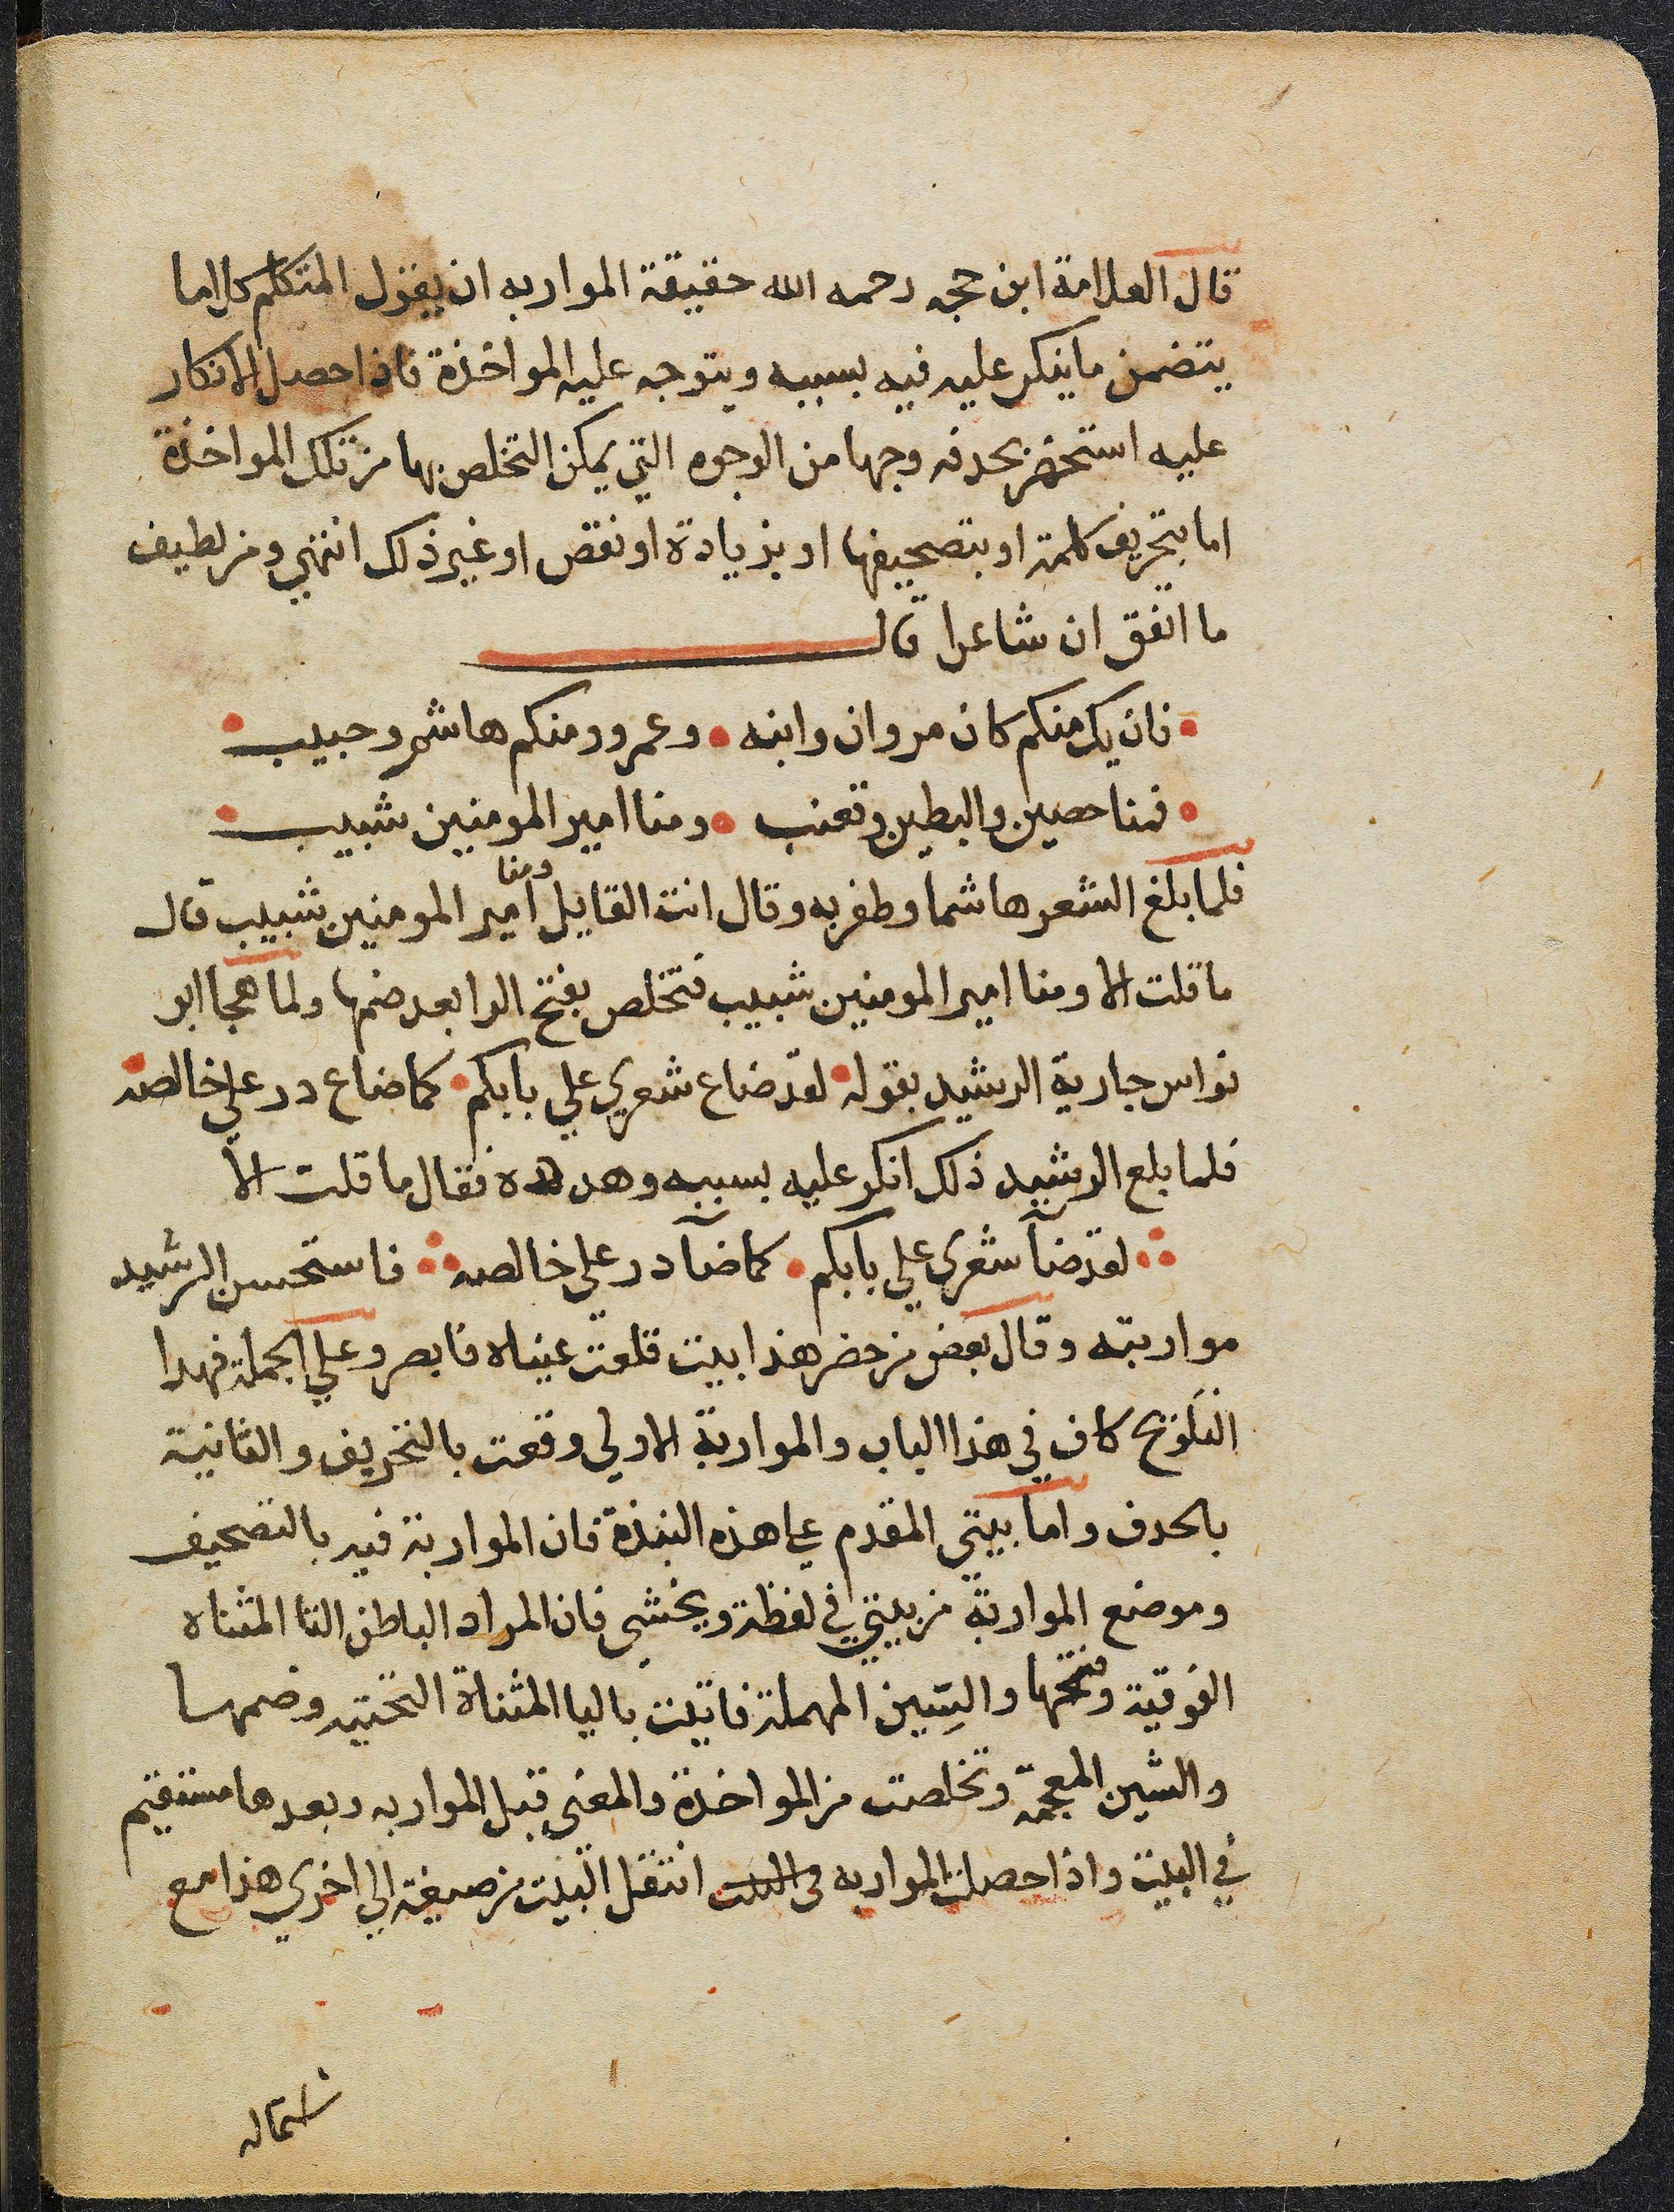 قال العلامة ابن حجه رحمه الله حقيقة المواربه ان يقول المتكلم كلاما
يتضمن ما ينكر عليه فيه بسببه ويتوجه عليه المواخذة فاذا حصل الانكار
عليه استحضر بحدقه وجها من الوجوه التي يمكن التخلص بها من تلك المواخذة
اما بتحريف كلمة او بتصحيفها او بزيادة او نقص او غير ذلك انتهي ومن لطيف
ما اتفق ان شاعرا قال
فان يك منكم كان مروان وابنه • وعمرو ومنكم هاشم وحبيب
فمنا حصين والبطين وقعنب • ومنا امير المومنين شبيب
فلما بلغ الشعر هاشما وظفر به وقال انت القايل ومنا امير المومنين شبيب قال
ما قلت الا ومنا امير المومنين شبيب فتخلص بفتح الرا بعد ضمها ولما هجا ابو
نواس جارية الرشيد بقوله • لقد ضاع شعري علي بابكم • كما ضاع در علي خالصه
فلما بلع الرشيد ذلك انكر عليه بسببه وهدده فقال ما قلت الا
لقد ضآ شعري علي بابكم • كما ضآ در علي خالصه فاستحسن الرشيد
مواربته وقال بعض من حضر هذا بيت قلعت عيناه فابصر وعلي الجملة فهدا
التلويح كاف في هذا الباب والمواربة الاولي وقعت بالتحريف والثانية
بالحدف واما بيتي المقدم علي هذه النبذة فان المواربة فيه بالتصحيف
وموضع المواربة من بيتي في لفظة ويخشي فان المراد الباطن التا المثناه
الفوقية وفتحها والسين المهملة فاتيت باليا المثناة التحتيه وضمها
والشين المعجمة وتخلصت من المواخذة والمعني قبل المواربه وبعدها مستقيم
في البيت واذا حصلت المواربه في البيت انتقل البيت من صيغة الي اخري هذا مع
اشتماله